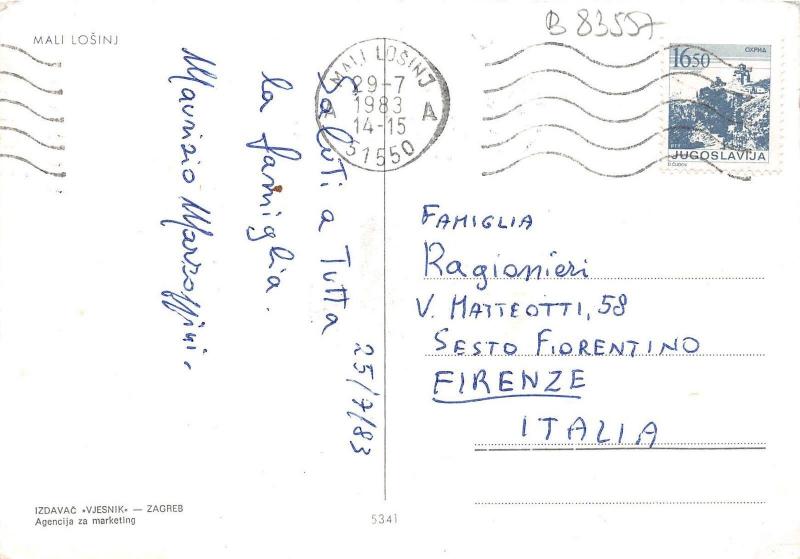 MALI LOŠINJ
B 83557
MALI LOŠINJ
29-7
1983
14-15
A
51550
1650
OXPИД
PTT
JUGOSLAVIJA
Saluti a Tutta
la famiglia.
Maurizio
25/7/83
FAMIGLIA
Ragionieri
V. MATTEOTTI, 58
SESTO FIORENTINO
FIRENZE
ITALIA
IZDAVAČ «VJESNIK» — ZAGREB
Agencija za marketing
5341